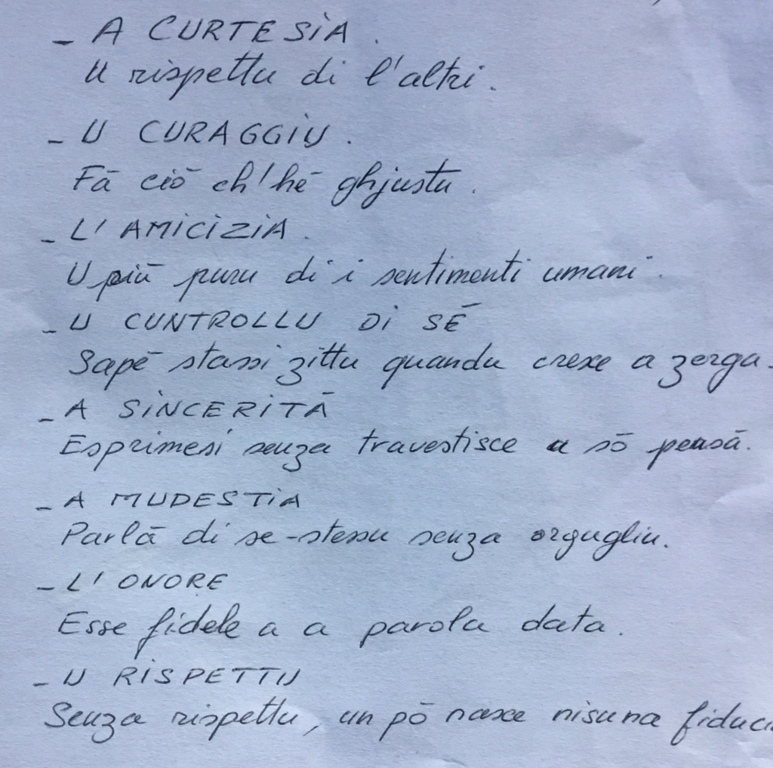 - A CURTESIA.
U rispettu di l'altri.
- U CURAGGIU.
Fā ciō ch'hē ghjustu.
- L'AMICIZIA.
U piū puru di i sentimenti umani.
- U CUNTROLLU DI SĒ
Sapē stassi zittu quandu crexe a zerga.
- A SINCERITĀ
Esprimesi senza travestisce a sō pensā.
- A MUDESTIA
Parlā di se-stessu senza orgugliu.
- L'ONORE
Esse fidele a a parola data.
- U RISPETTU
Senza rispettu, un pō nasce nisuna fiduci